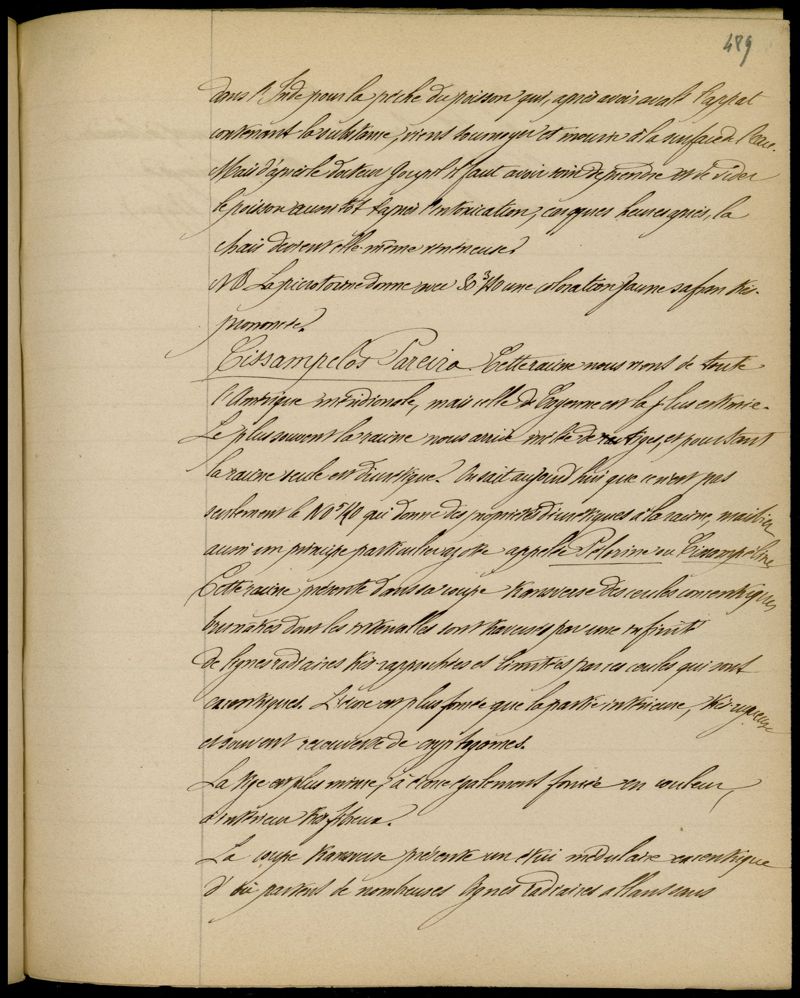 489
dans l'Inde pour la pêche du poisson qui, après avoir avalé l'appat
contenant la substance, vient tournoyer et mourir à la surface de l'eau.
Mais d'après le docteur il faut avoir soin de prendre et de vider
le poisson aussitôt après l'intoxication, quelques heures après, la
chair devient elle-même vénéneuse.
NB La picrotoxine donne avec SO³HO une coloration jaune safran très-
prononcée.
Cissampelos Pareira. Cette racine nous vient de toute
l'Amérique méridionale, mais celle de Cayenne est la plus estimée.
Le plus souvent la racine nous arrive mêlée de tiges, et pourtant
la racine seule est diurétique. On sait aujourd'hui que ce n'est pas
seulement le NO⁵KO qui donne des propriétés diurétiques à la racine, mais bien
aussi un principe particulier azoté appelé Pélosine ou Cissampéline
Cette racine présente dans sa coupe transverse des cercles concentriques
brunâtres dont les intervalles sont traversés par une infinité
de lignes radiaires très rapprochées et limitées par ces cercles qui sont
excentriques. L'écorce est plus foncée que la partie intérieure, très rugueuse
et souvent recouverte de cryptogames.
La tige est plus mince, à écorce également foncée en couleur,
à intérieur très fibreux.
La coupe transverse présente un étui médulaire excentrique
d'où partent de nombreuses lignes radiaires allant sans